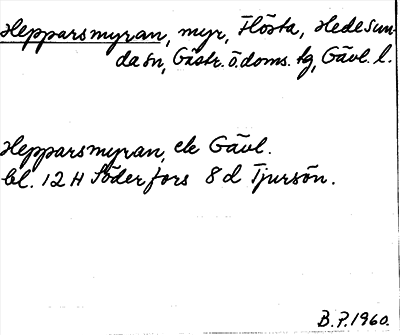 Hepparsmyran, myr, Flösta, Hedesun-
da sn, Gästr. ö. doms. tg, Gävl. l.
Hepparsmyran, ek Gävl.
bl. 12 H Söderfors 8 d Tjursön.
B.P. 1960.